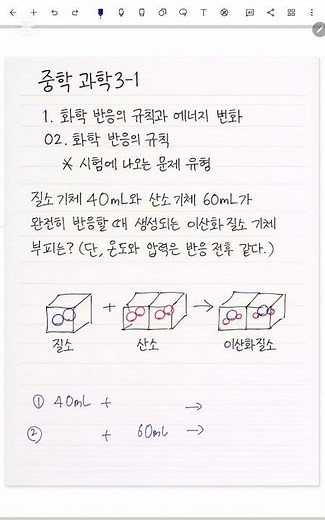 중학 과학3-1
1. 화학 반응의 규칙과 에너지 변화
02. 화학 반응의 규칙
※ 시험에 나오는 문제 유형
질소 기체 40mL와 산소 기체 60mL가
완전히 반응할 때 생성되는 이산화질소 기체
부피는? (단, 온도와 압력은 반응 전후 같다.)
+ →
질소 산소 이산화질소
① 40mL + →
② + 60mL →